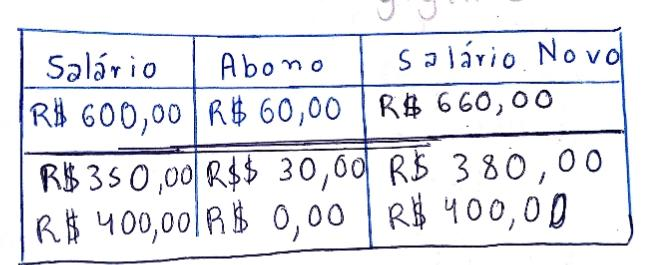 Salário Abono Salário Novo
R$ 600,00 R$ 60,00 R$ 660,00
R$ 350,00 R$$ 30,00 R$ 380,00
R$ 400,00 R$ 0,00 R$ 400,00